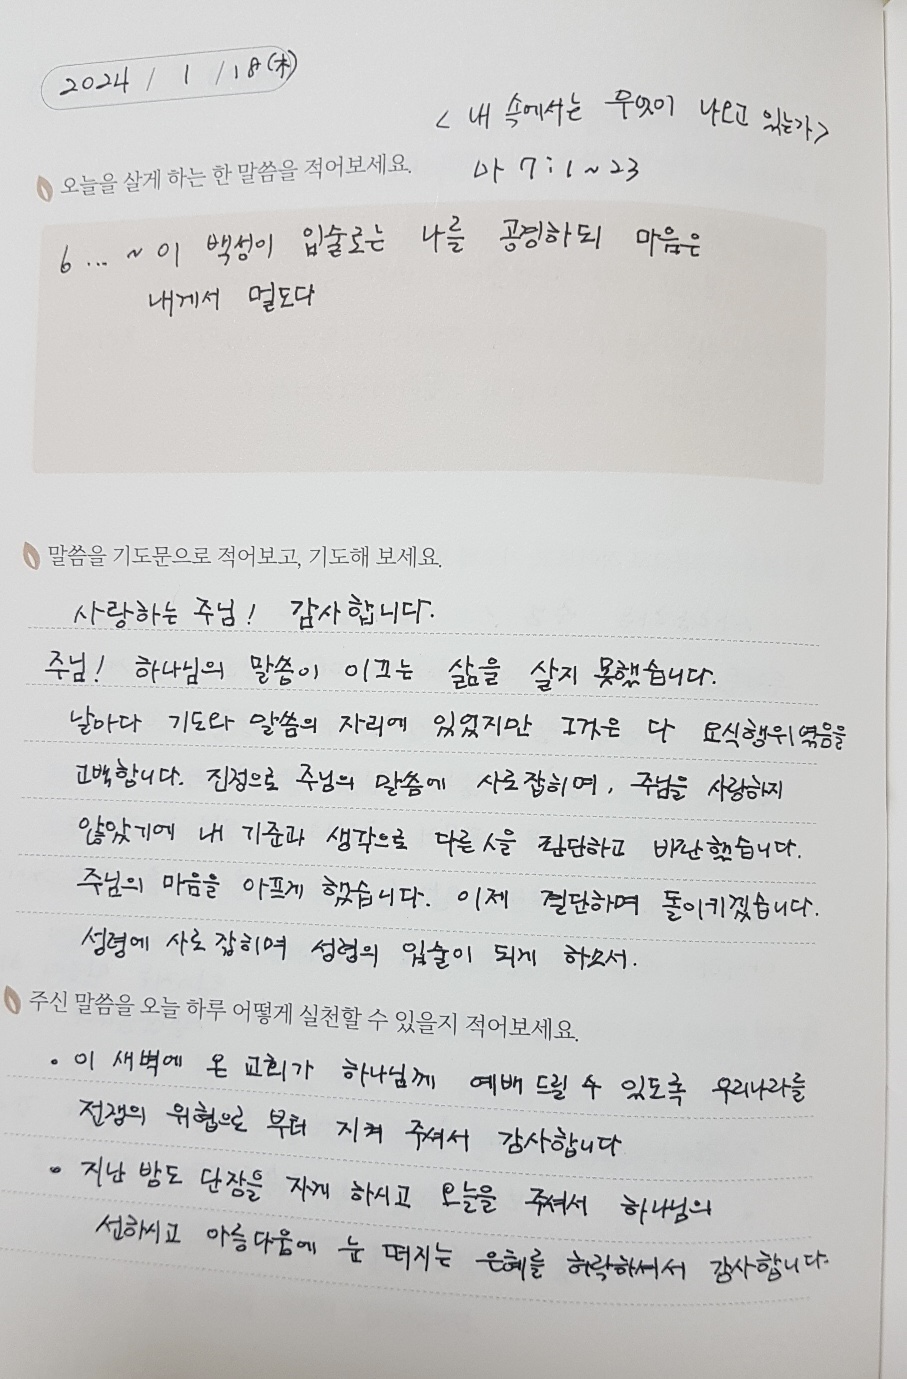 2024 / 1 / 18 (木)
< 내 속에서는 무엇이 나오고 있는가>
오늘을 살게 하는 한 말씀을 적어보세요.
마 7:1~23
6 ... ~ 이 백성이 입술로는 나를 공경하되 마음은
내게서 멀도다
말씀을 기도문으로 적어보고, 기도해 보세요.
사랑하는 주님! 감사합니다.
주님! 하나님의 말씀이 이끄는 삶을 살지 못했습니다.
날마다 기도와 말씀의 자리에 있었지만 그것은 다 요식행위였음을
고백합니다. 진정으로 주님의 말씀에 사로잡히며, 주님을 사랑하지
않았기에 내 기준과 생각으로 다른 人을 판단하고 비난했습니다.
주님의 마음을 아프게 했습니다. 이제 결단하며 돌이키겠습니다.
성령에 사로잡히며 성령의 입술이 되게 하소서.
주신 말씀을 오늘 하루 어떻게 실천할 수 있을지 적어보세요.
• 이 새벽에 온 교회가 하나님께 예배 드릴 수 있도록 우리나라를
전쟁의 위협으로 부터 지켜 주셔서 감사합니다
• 지난 밤도 단잠을 자게 하시고 오늘을 주셔서 하나님의
선하시고 아름다움에 눈 떠지는 은혜를 허락하셔서 감사합니다.